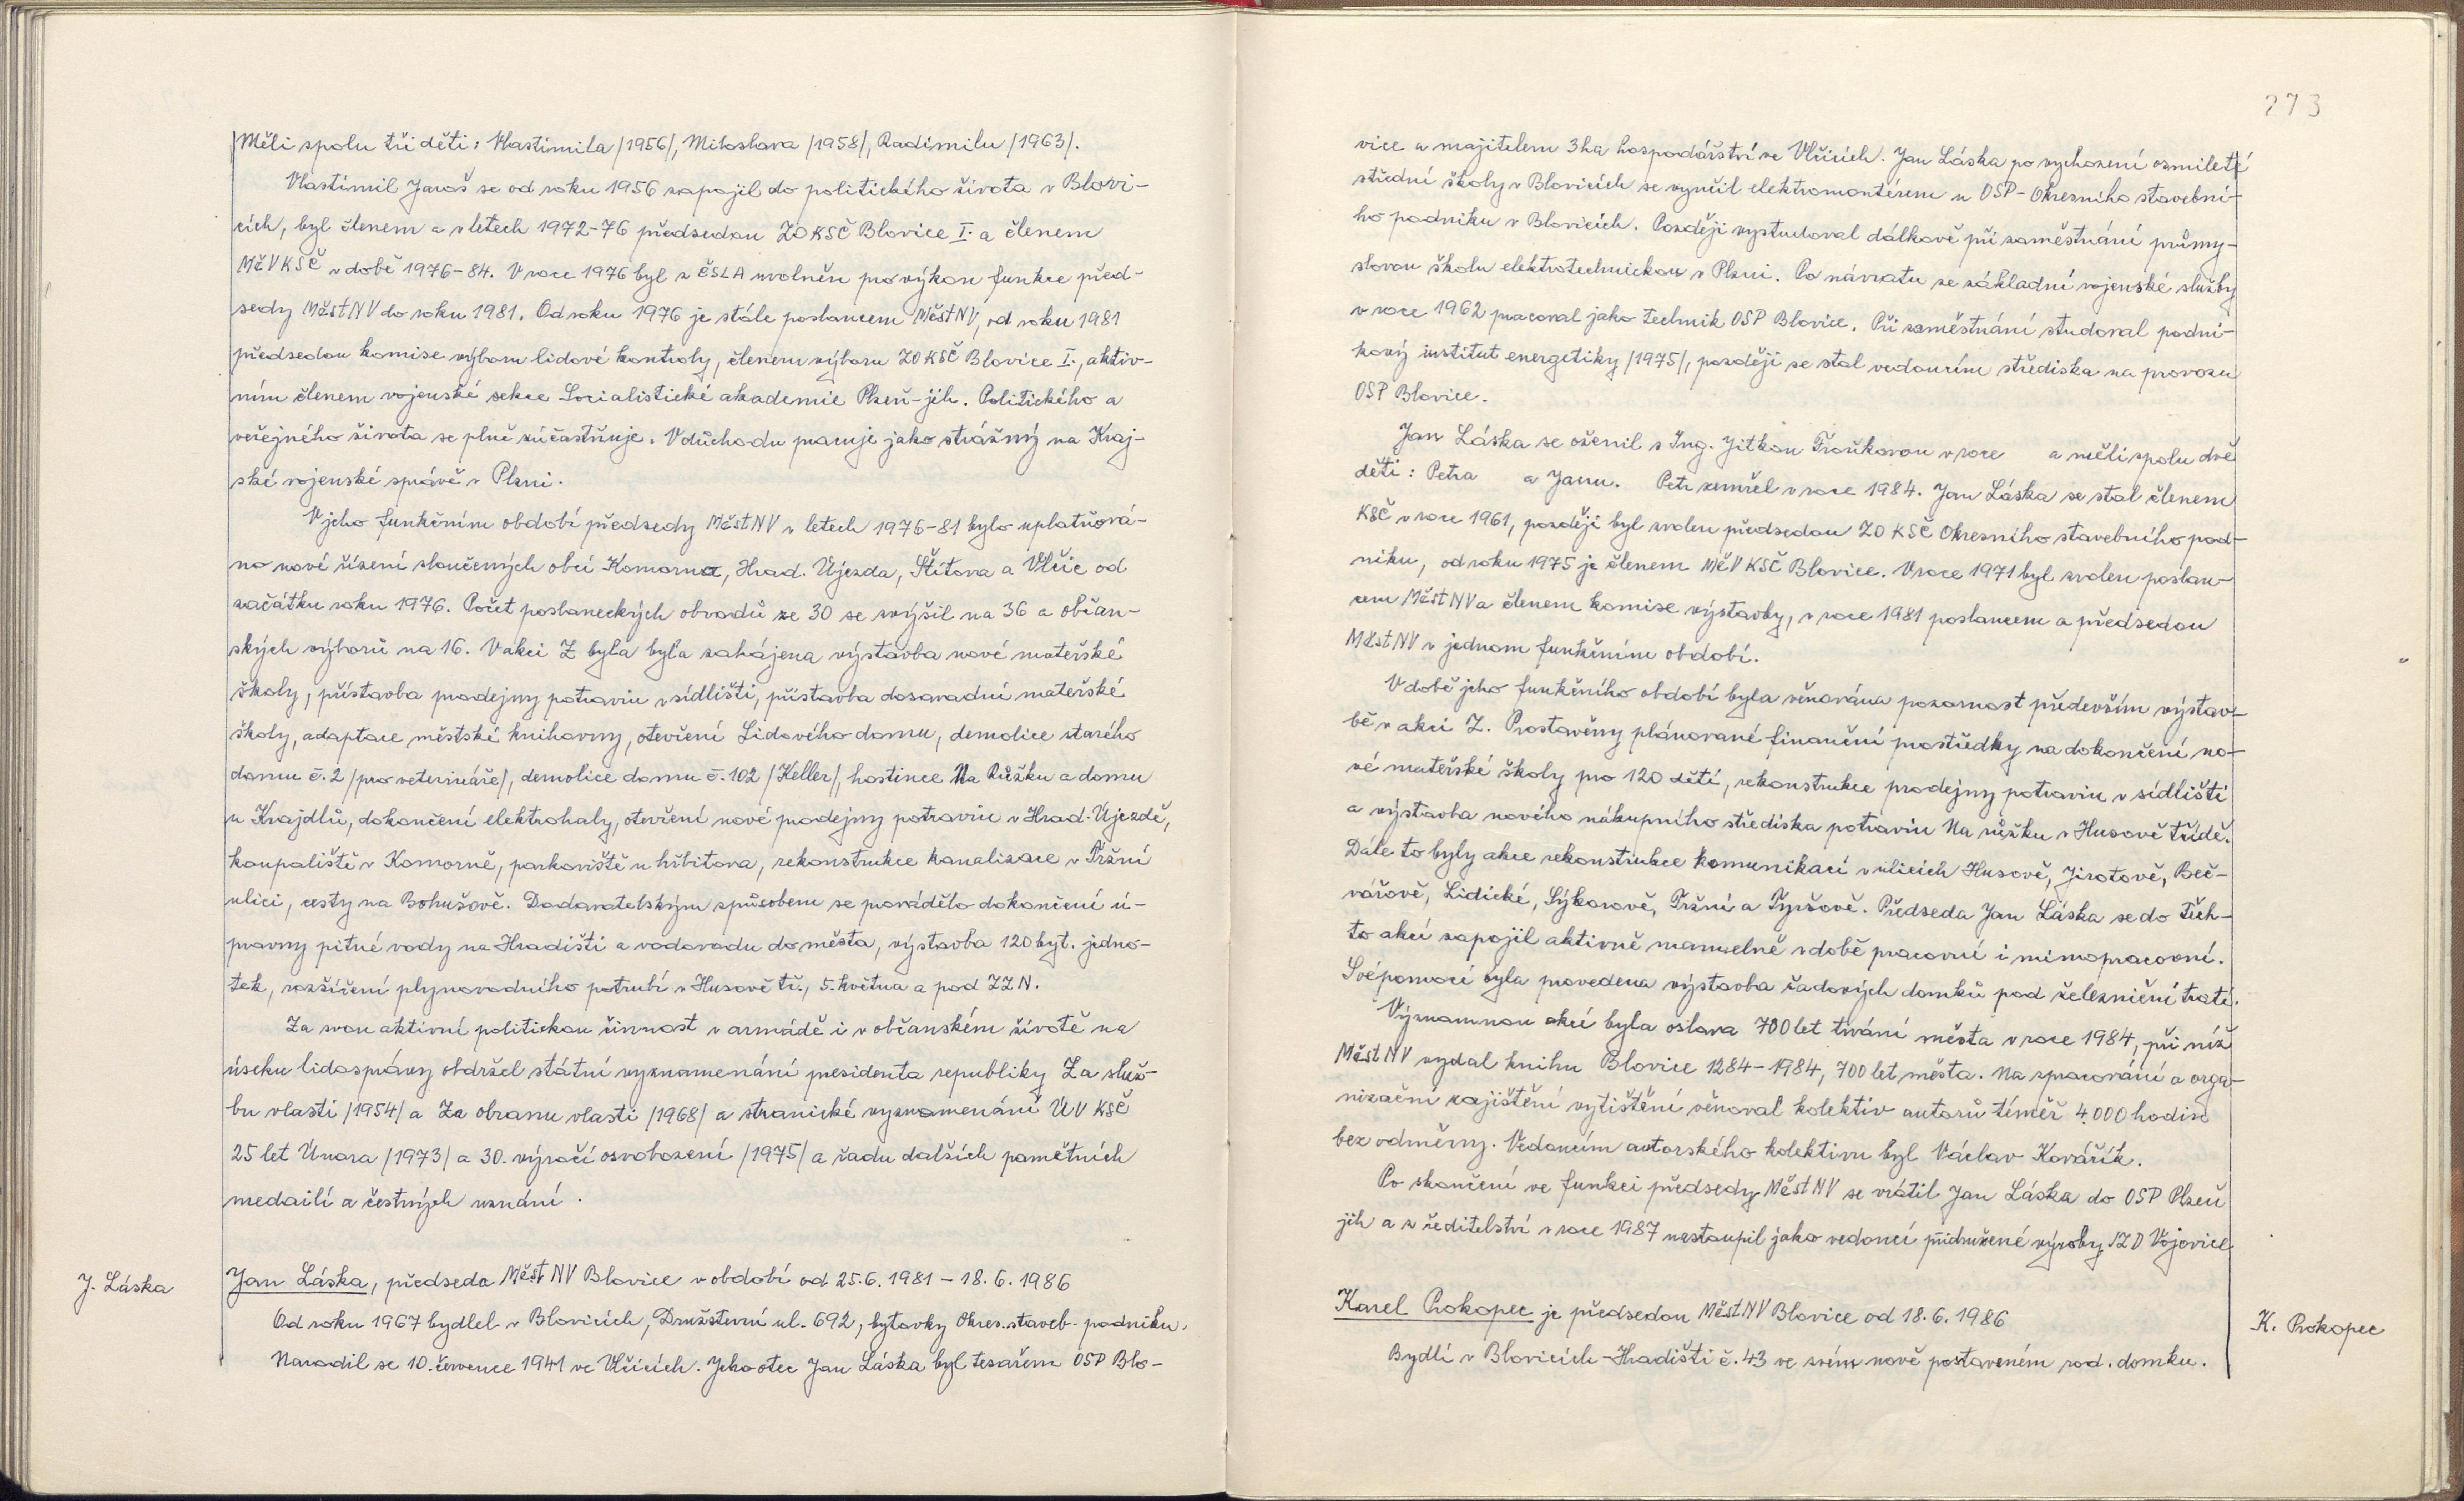 Měli spolu tři děti: Vlastimila /1956/, Miloslava /1958/, Radimilu /1963/.
Vlastimil Jaroš se od roku 1956 zapojil do politického života v Blovi-
cích, byl členem a v letech 1972-76 předsedou ZO KSČ Blovice I. a členem
MěV KSČ v době 1976-84. V roce 1976 byl z ČSLA uvolněn pro výkon funkce před-
sedy MěstNV do roku 1981. Od roku 1976 je stále poslancem MěstNV, od roku 1981
předsedou komise výboru lidové kontroly, členem výboru ZO KSČ Blovice I., aktiv-
ním členem vojenské sekce Socialistické akademie Plzeň-jih. Politického a
veřejného života se plně zúčastňuje. V důchodu pracuje jako strážný na Kraj-
ské vojenské správě v Plzni.
V jeho funkčním období předsedy MěstNV v letech 1976-81 bylo uplatňová-
no nové řízení sloučených obcí Komorna, Hrad. Újezda, Štítova a Vlčic od
začátku roku 1976. Počet poslaneckých obvodů ze 30 se zvýšil na 36 a občan-
ských výborů na 16. V akci Z byla byla zahájena výstavba nové mateřské
školy, přístavba prodejny potravin v sídlišti, přístavba dosavadní mateřské
školy, adaptace městské knihovny, otevření Lidového domu, demolice starého
domu č. 2 /pro veterináře/, demolice domu č. 102 /Keller/, hostince Na Růžku a domu
u Krajdlů, dokončení elektrohaly, otevření nové prodejny potravin v Hrad. Újezdě,
koupaliště v Komorně, parkoviště u hřbitova, rekonstrukce kanalizace v Tržní
ulici, cesty na Bohušově. Dodavatelským způsobem se provádělo dokončení ú-
pravny pitné vody na Hradišti a vodovodu do města, výstavba 120 byt. jedno-
tek, rozšíření plynovodního potrubí v Husově tř., 5. května a pod ZZN.
Za svou aktivní politickou činnost v armádě i v občanském životě na
úseku lidosprávy obdržel státní vyznamenání presidenta republiky Za služ-
bu vlasti /1954/ a Za obranu vlasti /1968/ a stranické vyznamenání ÚV KSČ
25 let Února /1973/ a 30. výročí osvobození /1975/ a řadu dalších pamětních
medailí a čestných uznání.
J. Láska
Jan Láska, předseda MěstNV Blovice v období od 25.6.1981 - 18.6.1986
Od roku 1967 bydlel v Blovicích, Družstevní ul. 692, bytovky Okres. staveb. podniku.
Narodil se 10. července 1941 ve Vlčicích. Jeho otec Jan Láska byl tesařem OSP Blo-
273
vice a majitelem 3ha hospodářství ve Vlčicích. Jan Láska po vychození osmileté
střední školy v Blovicích se vyučil elektromontérem u OSP - Okresního stavební-
ho podniku v Blovicích. Později vystudoval dálkově při zaměstnání průmy-
slovou školu elektrotechnickou v Plzni. Po návratu ze základní vojenské služby
v roce 1962 pracoval jako technik OSP Blovice. Při zaměstnání studoval podni-
kový institut energetiky /1975/, později se stal vedoucím střediska na provozu
OSP Blovice.
Jan Láska se oženil s Ing. Jitkou Froňkovou v roce a měli spolu dvě
děti: Petra a Janu. Petr zemřel v roce 1984. Jan Láska se stal členem
KSČ v roce 1961, později byl zvolen předsedou ZO KSČ Okresního stavebního pod-
niku, od roku 1975 je členem MěV KSČ Blovice. V roce 1971 byl zvolen poslan-
cem MěstNV a členem komise výstavby, v roce 1981 poslancem a předsedou
MěstNV v jednom funkčním období.
V době jeho funkčního období byla věnována pozornost především výstav-
bě v akci Z. Prostavěny plánované finanční prostředky na dokončení no-
vé mateřské školy pro 120 dětí, rekonstrukce prodejny potravin v sídlišti
a výstavba nového nákupního střediska potravin Na růžku v Husově třídě.
Dále to byly akce rekonstrukce komunikací v ulicích Husově, Jirotově, Beč-
vářově, Lidické, Sýkorově, Tržní a Tyršově. Předseda Jan Láska se do těch-
to akcí zapojil aktivně manuelně v době pracovní i mimopracovní.
Svépomocí byla provedena výstavba řadových domků pod železniční tratí.
Významnou akcí byla oslava 700 let trvání města v roce 1984, při níž
MěstNV vydal knihu Blovice 1284-1984, 700 let města. Na zpracování a orga-
nizační zajištění vytištění věnoval kolektiv autorů téměř 4.000 hodin
bez odměny. Vedoucím autorského kolektivu byl Václav Kovářík.
Po skončení ve funkci předsedy MěstNV se vrátil Jan Láska do OSP Plzeň
jih a z ředitelství v roce 1987 nastoupil jako vedoucí přidružené výroby JZD Vojovice
Karel Prokopec je předsedou MěstNV Blovice od 18.6.1986
K. Prokopec
Bydlí v Blovicích-Hradišti č. 43 ve svém nově postaveném rod. domku.